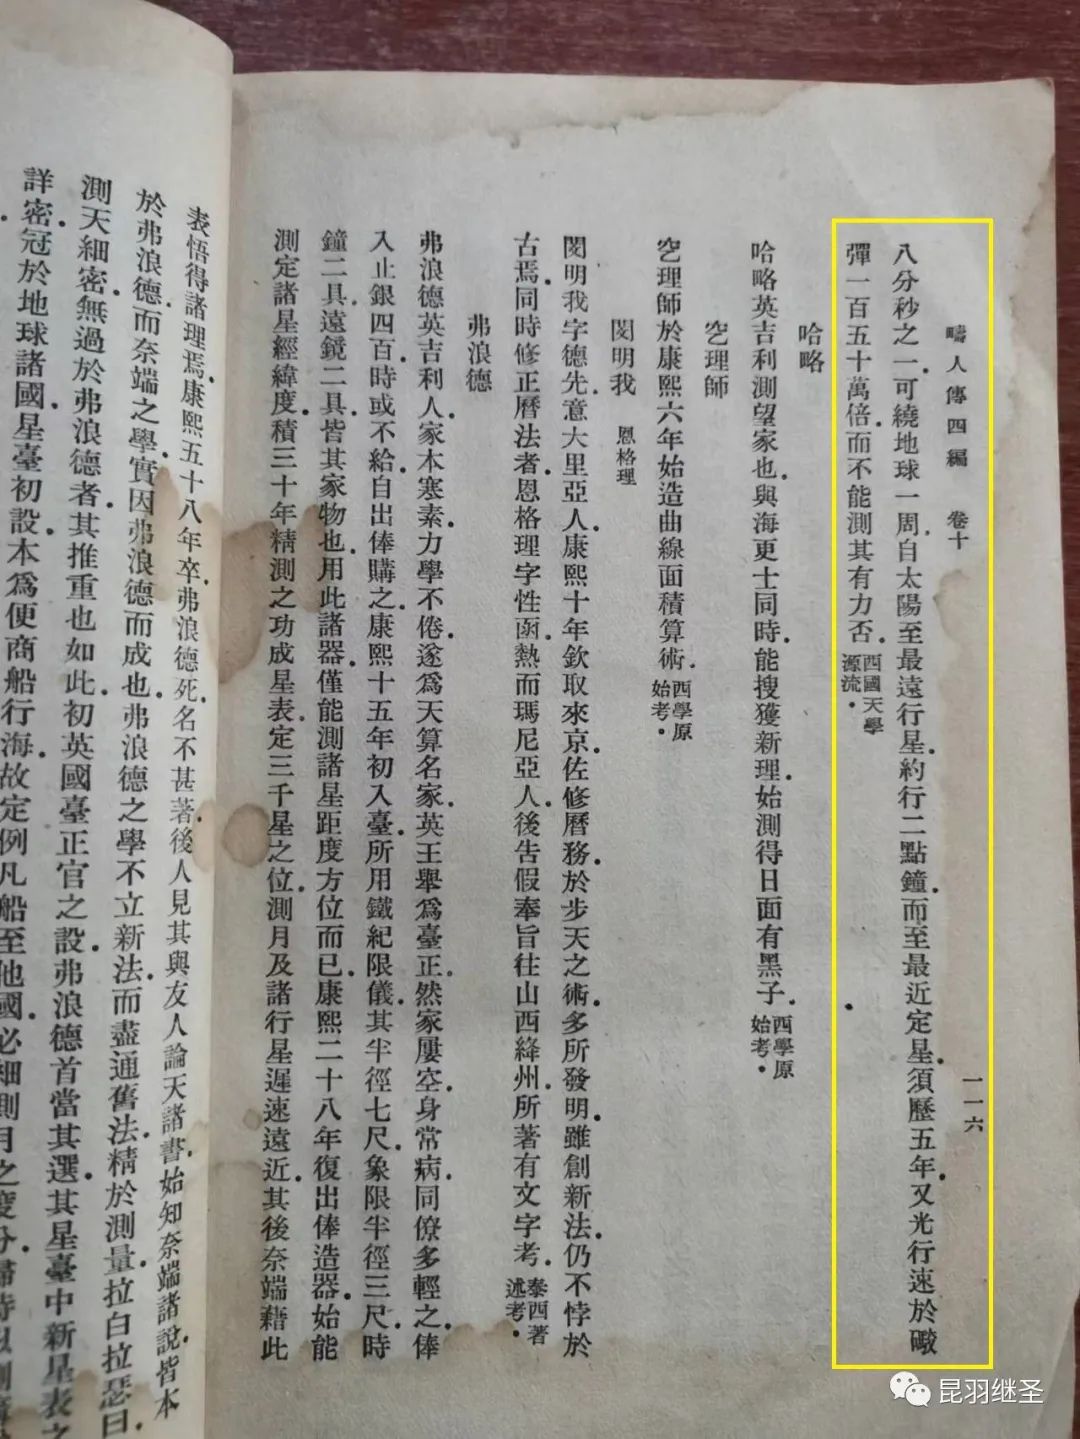 疇人傳四編　卷十　一一六
八分秒之一.可繞地球一周.自太陽至最遠行星.約行二點鐘.而至最近定星.須歷五年.又光行速於礮
彈一百五十萬倍.而不能測其有力否.西國天學源流.
哈略
哈略英吉利測望家也.與海更士同時.能搜獲新理.始測得日面有黑子.西學原始考.
空理師
空理師於康熙六年始造曲線面積算術.西學原始考.
閔明我　恩格理
閔明我字德先.意大里亞人.康熙十年欽取來京.佐修曆務.於步天之術.多所發明.雖創新法.仍不悖於
古焉.同時修正曆法者.恩格理字性函.熱而瑪尼亞人.後告假奉旨往山西絳州.所著有文字考.泰西著述考.
弗浪德
弗浪德英吉利人.家本寒素.力學不倦.遂爲天算名家.英王舉爲臺正.然家屢空.身常病.同僚多輕之.俸
入止銀四百.時或不給.自出俸購之.康熙十五年初入臺.所用鐵紀限儀.其半徑七尺.象限半徑三尺.時
鐘二具.遠鏡二具.皆其家物也.用此諸器.僅能測諸星距度方位而已.康熙二十八年.復出俸造器.始能
測定諸星經緯度.積三十年精測之功.成星表.定三千星之位.測月及諸行星遲速遠近.其後奈端藉此
表悟得諸理焉.康熙五十八年卒.弗浪德死.名不甚著.後人見其與友人論天諸書.始知奈端諸說.皆本
於弗浪德.而奈端之學.實因弗浪德而成也.弗浪德之學.不立新法.而盡通舊法.精於測量.拉白拉瑟曰.
測天細密.無過於弗浪德者.其推重也如此.初英國臺正官之設.弗浪德首當其選.其星臺中新星表之
詳密.冠於地球諸國.星臺初設.本爲便商船行海.故定例凡船至他國.必細測月之度分.歸時以
昆羽继圣